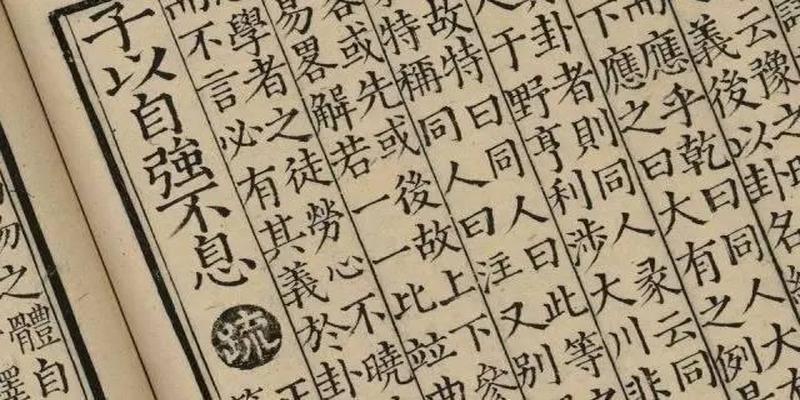 云豫之
義後以卦名
而應乎乾曰同人大
下應之曰大有之例
卦者則同人彖云同
于野亨利涉大川非
故特曰同人曰此等
特稱同人曰注又別
或先或後故上下參
易畧解若一一比並曲
學者之徒勞心不曉
而不言必有其義於卦
子以自強不息疏
之體自